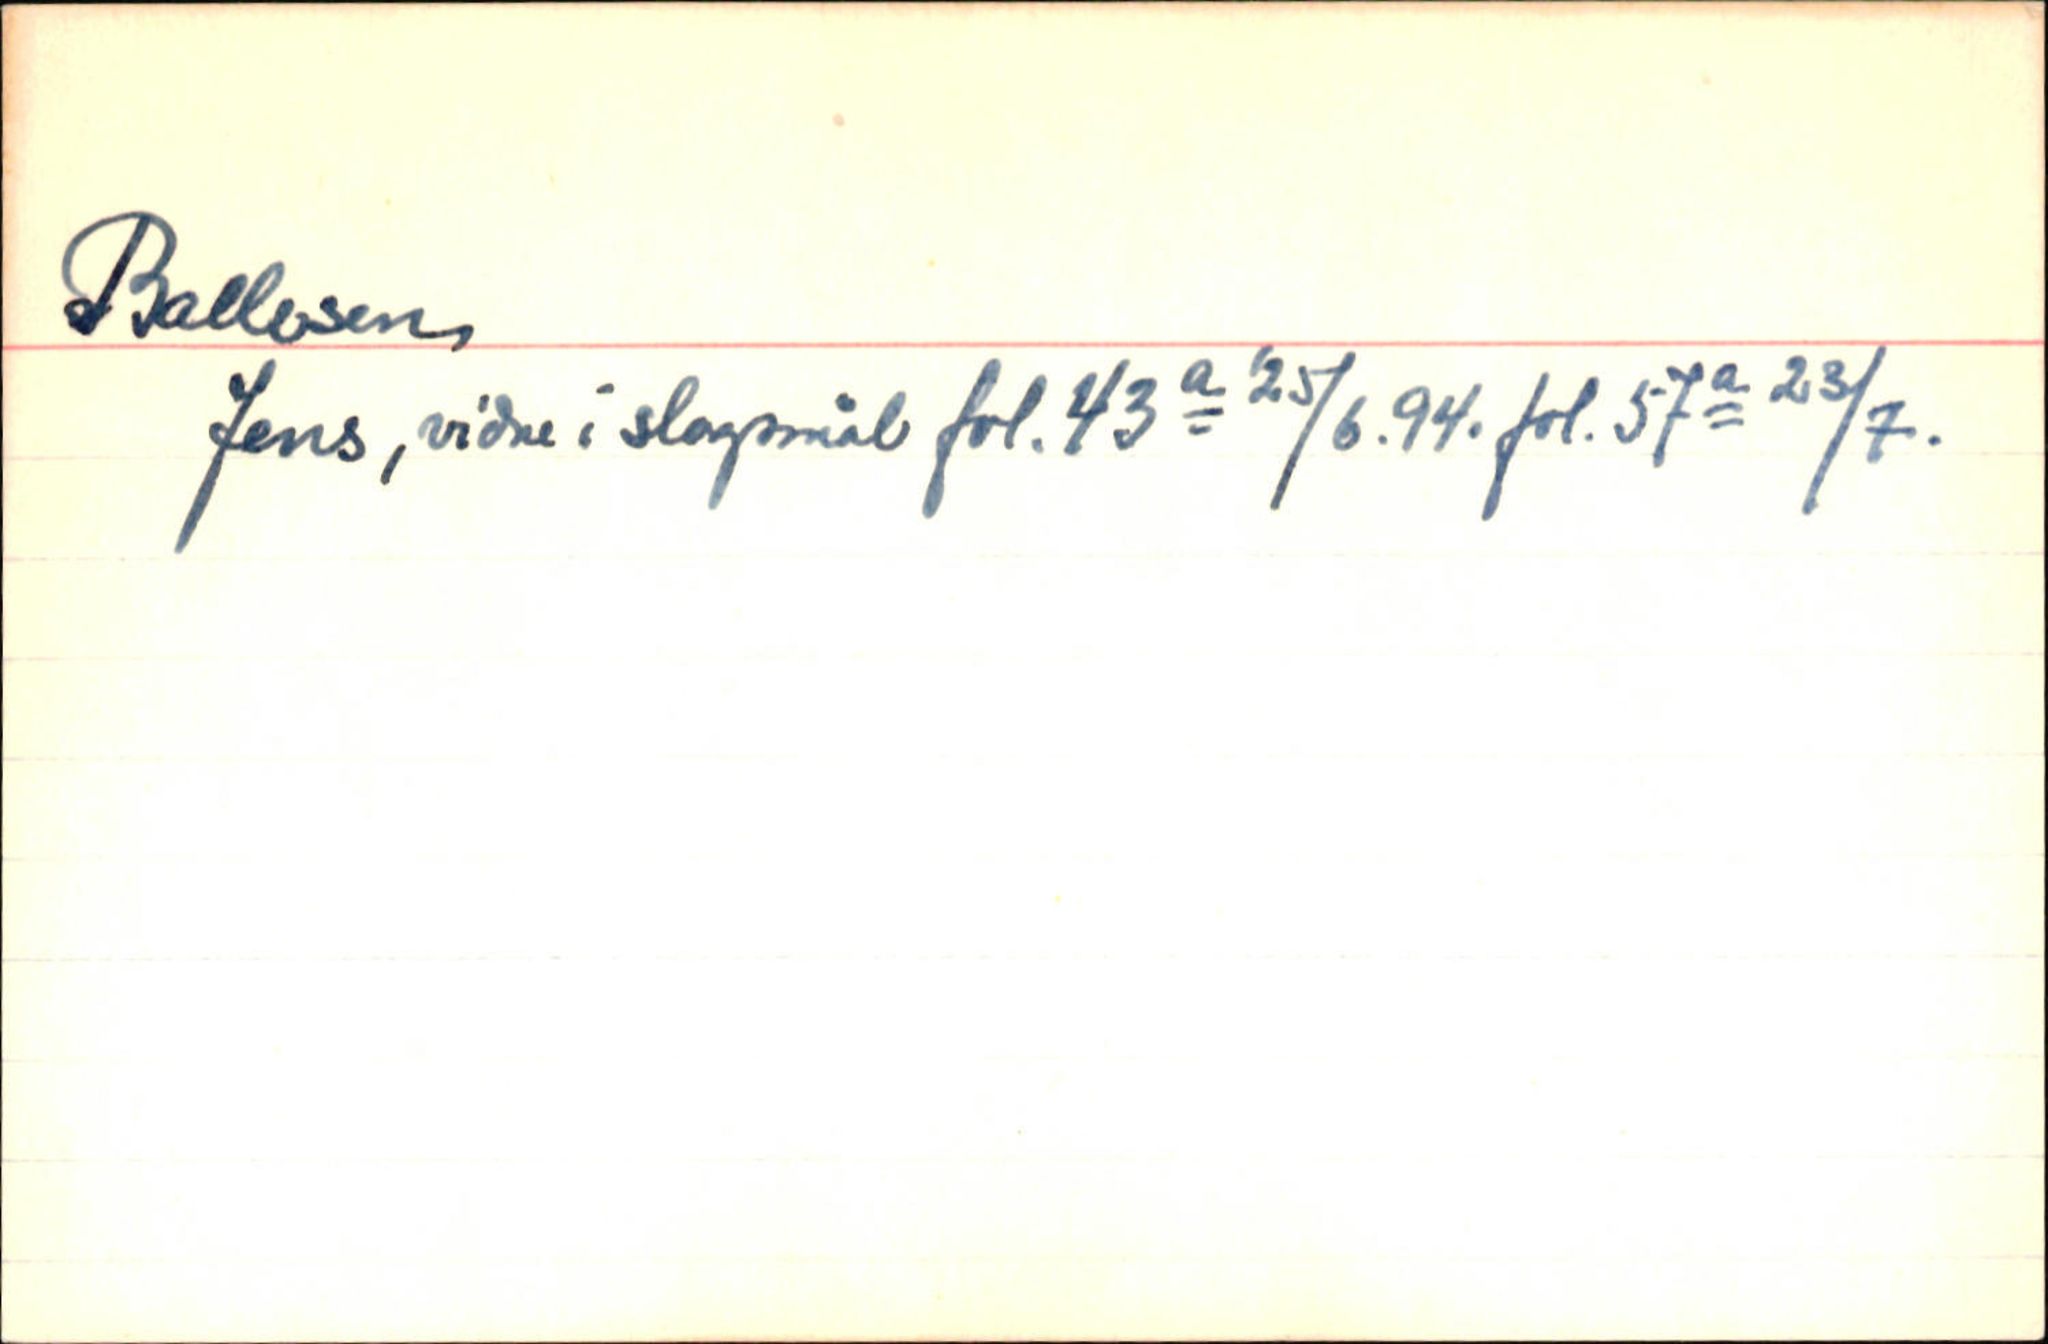 Ballesen,
Jens, vidne i slagsmål fol. 43a 25/6.94. fol. 57a 23/7.